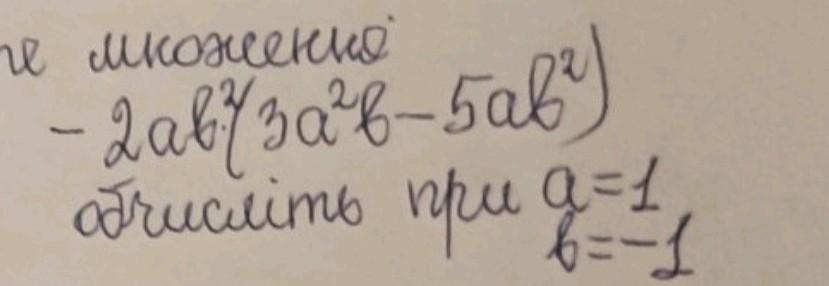 множення
-2ab²(3a²b-5ab²)
обчисліть при a=1
b=-1